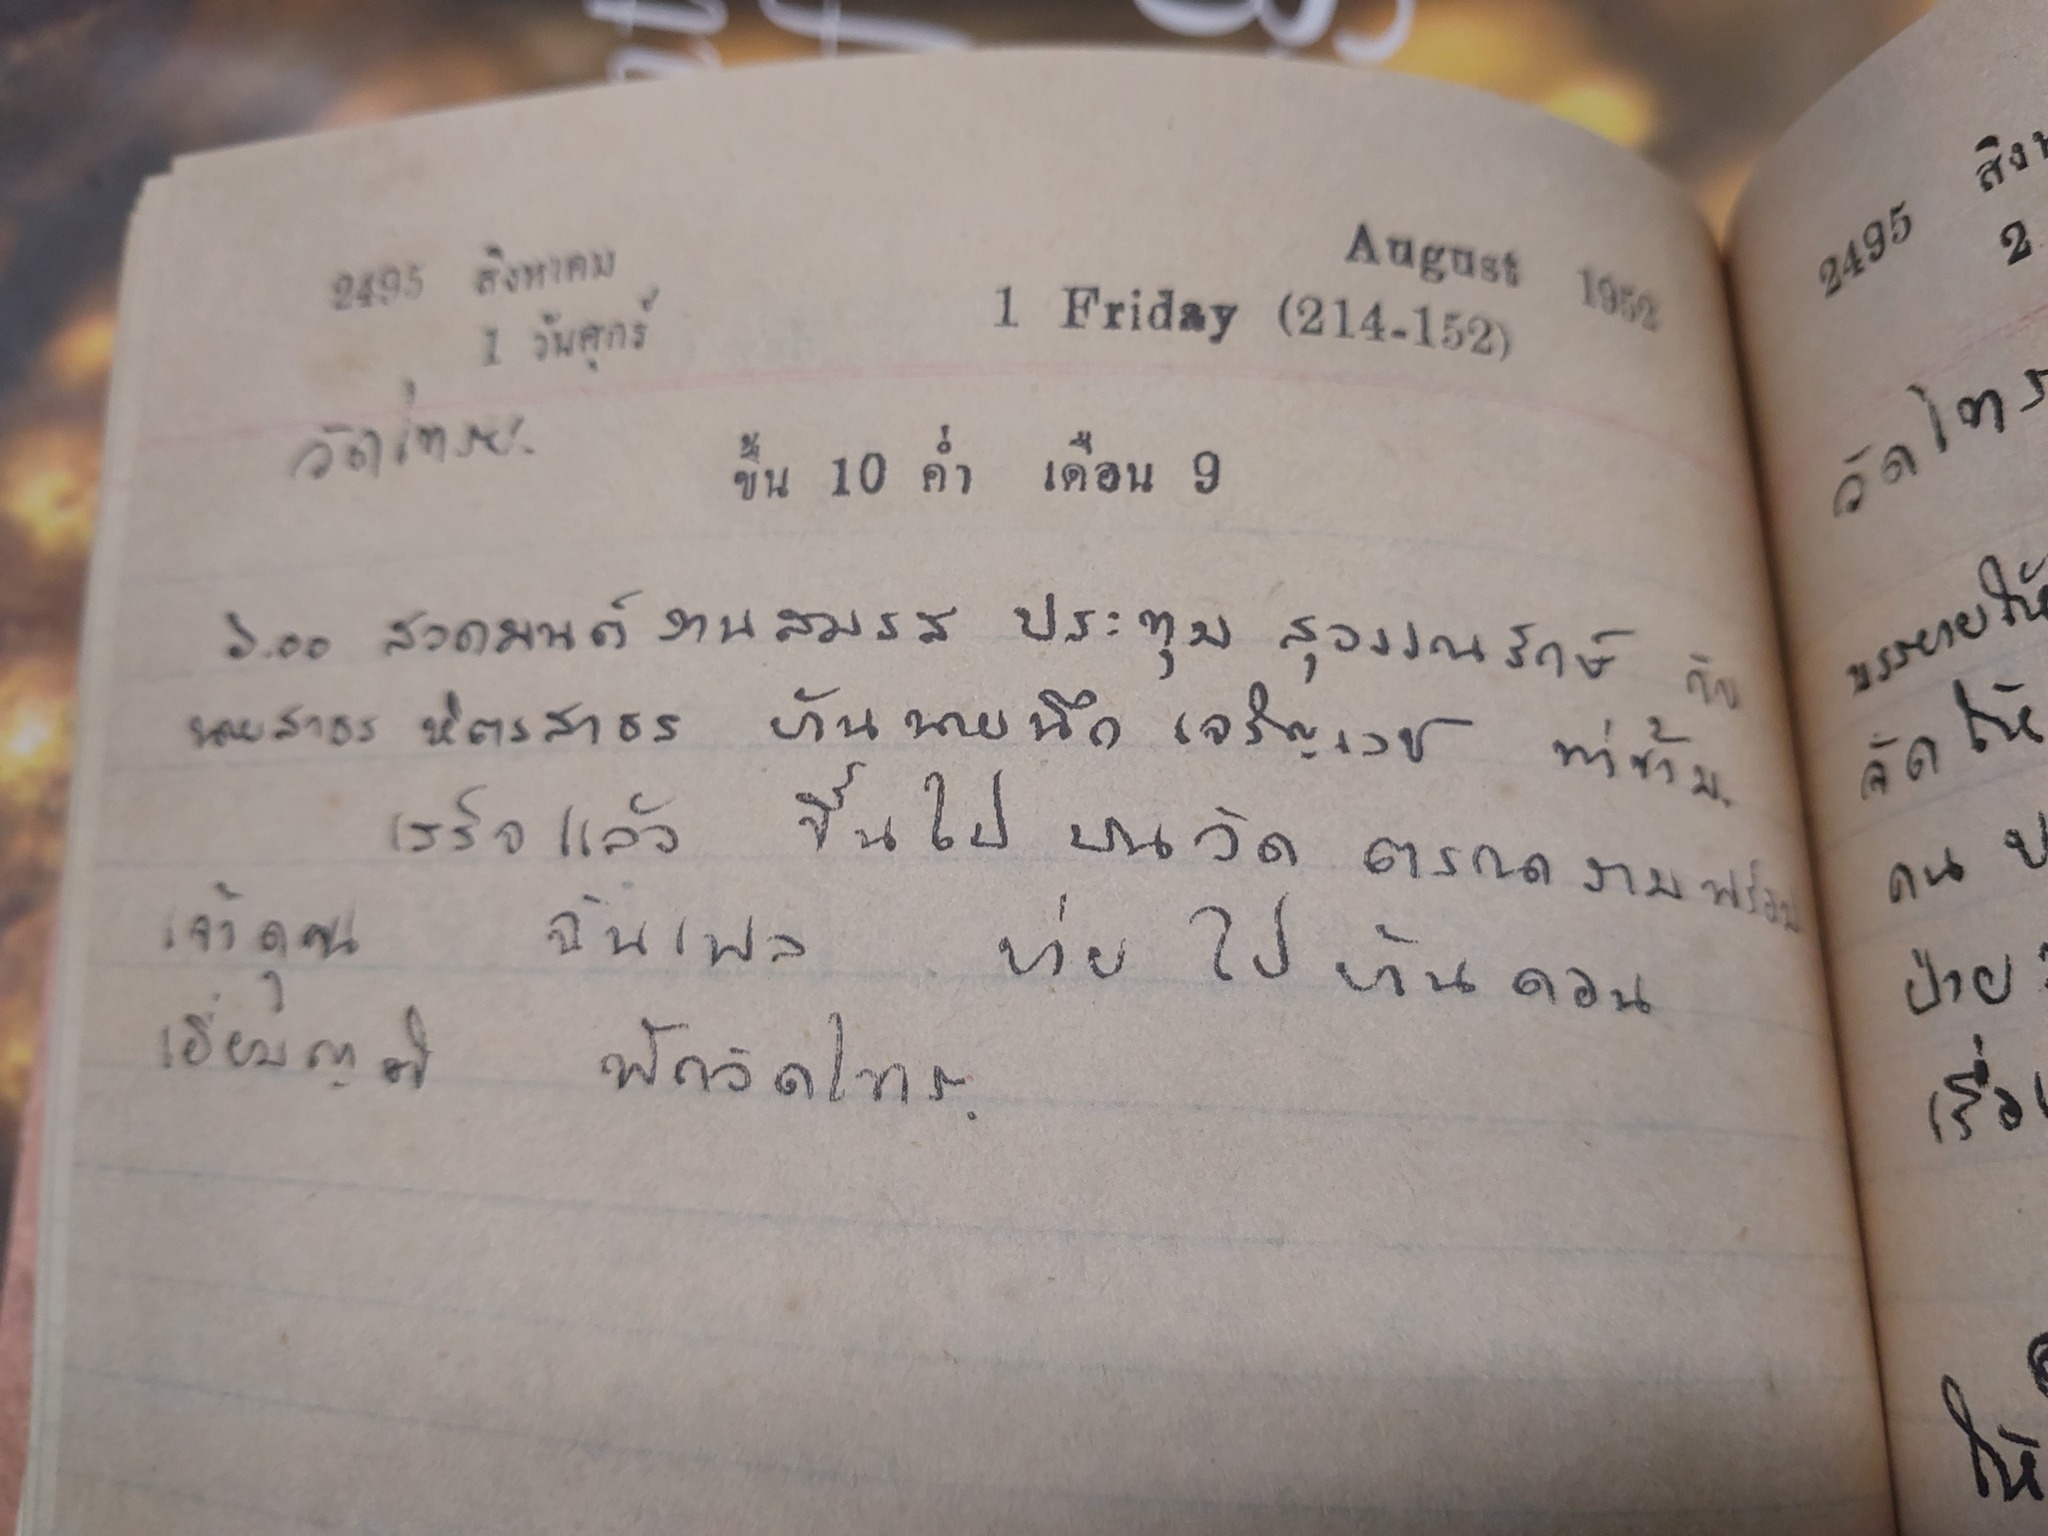 2495 สิงหาคม
1 วันศุกร์
August 1952
1 Friday (214-152)
วัดไทร
ขึ้น 10 ค่ำ เดือน 9
๖.๐๐ สวดมนต์งานสมรส ประทุม สุวรรณรักษ์ กับ
นายสาธร หิตรสาธร บ้านนายนึก เจริญเวช ท่าข้าม.
เสร็จแล้ว ขึ้นไปบนวัด ตรวดงานพร้อม
เจ้าคุณ ฉันเพล บ่าย ไปบ้านดอน
เยี่ยม พักวัดไทร.
2495
2
วัดไทร
บรรยายให้
จัดให้
คน
ฝ่าย